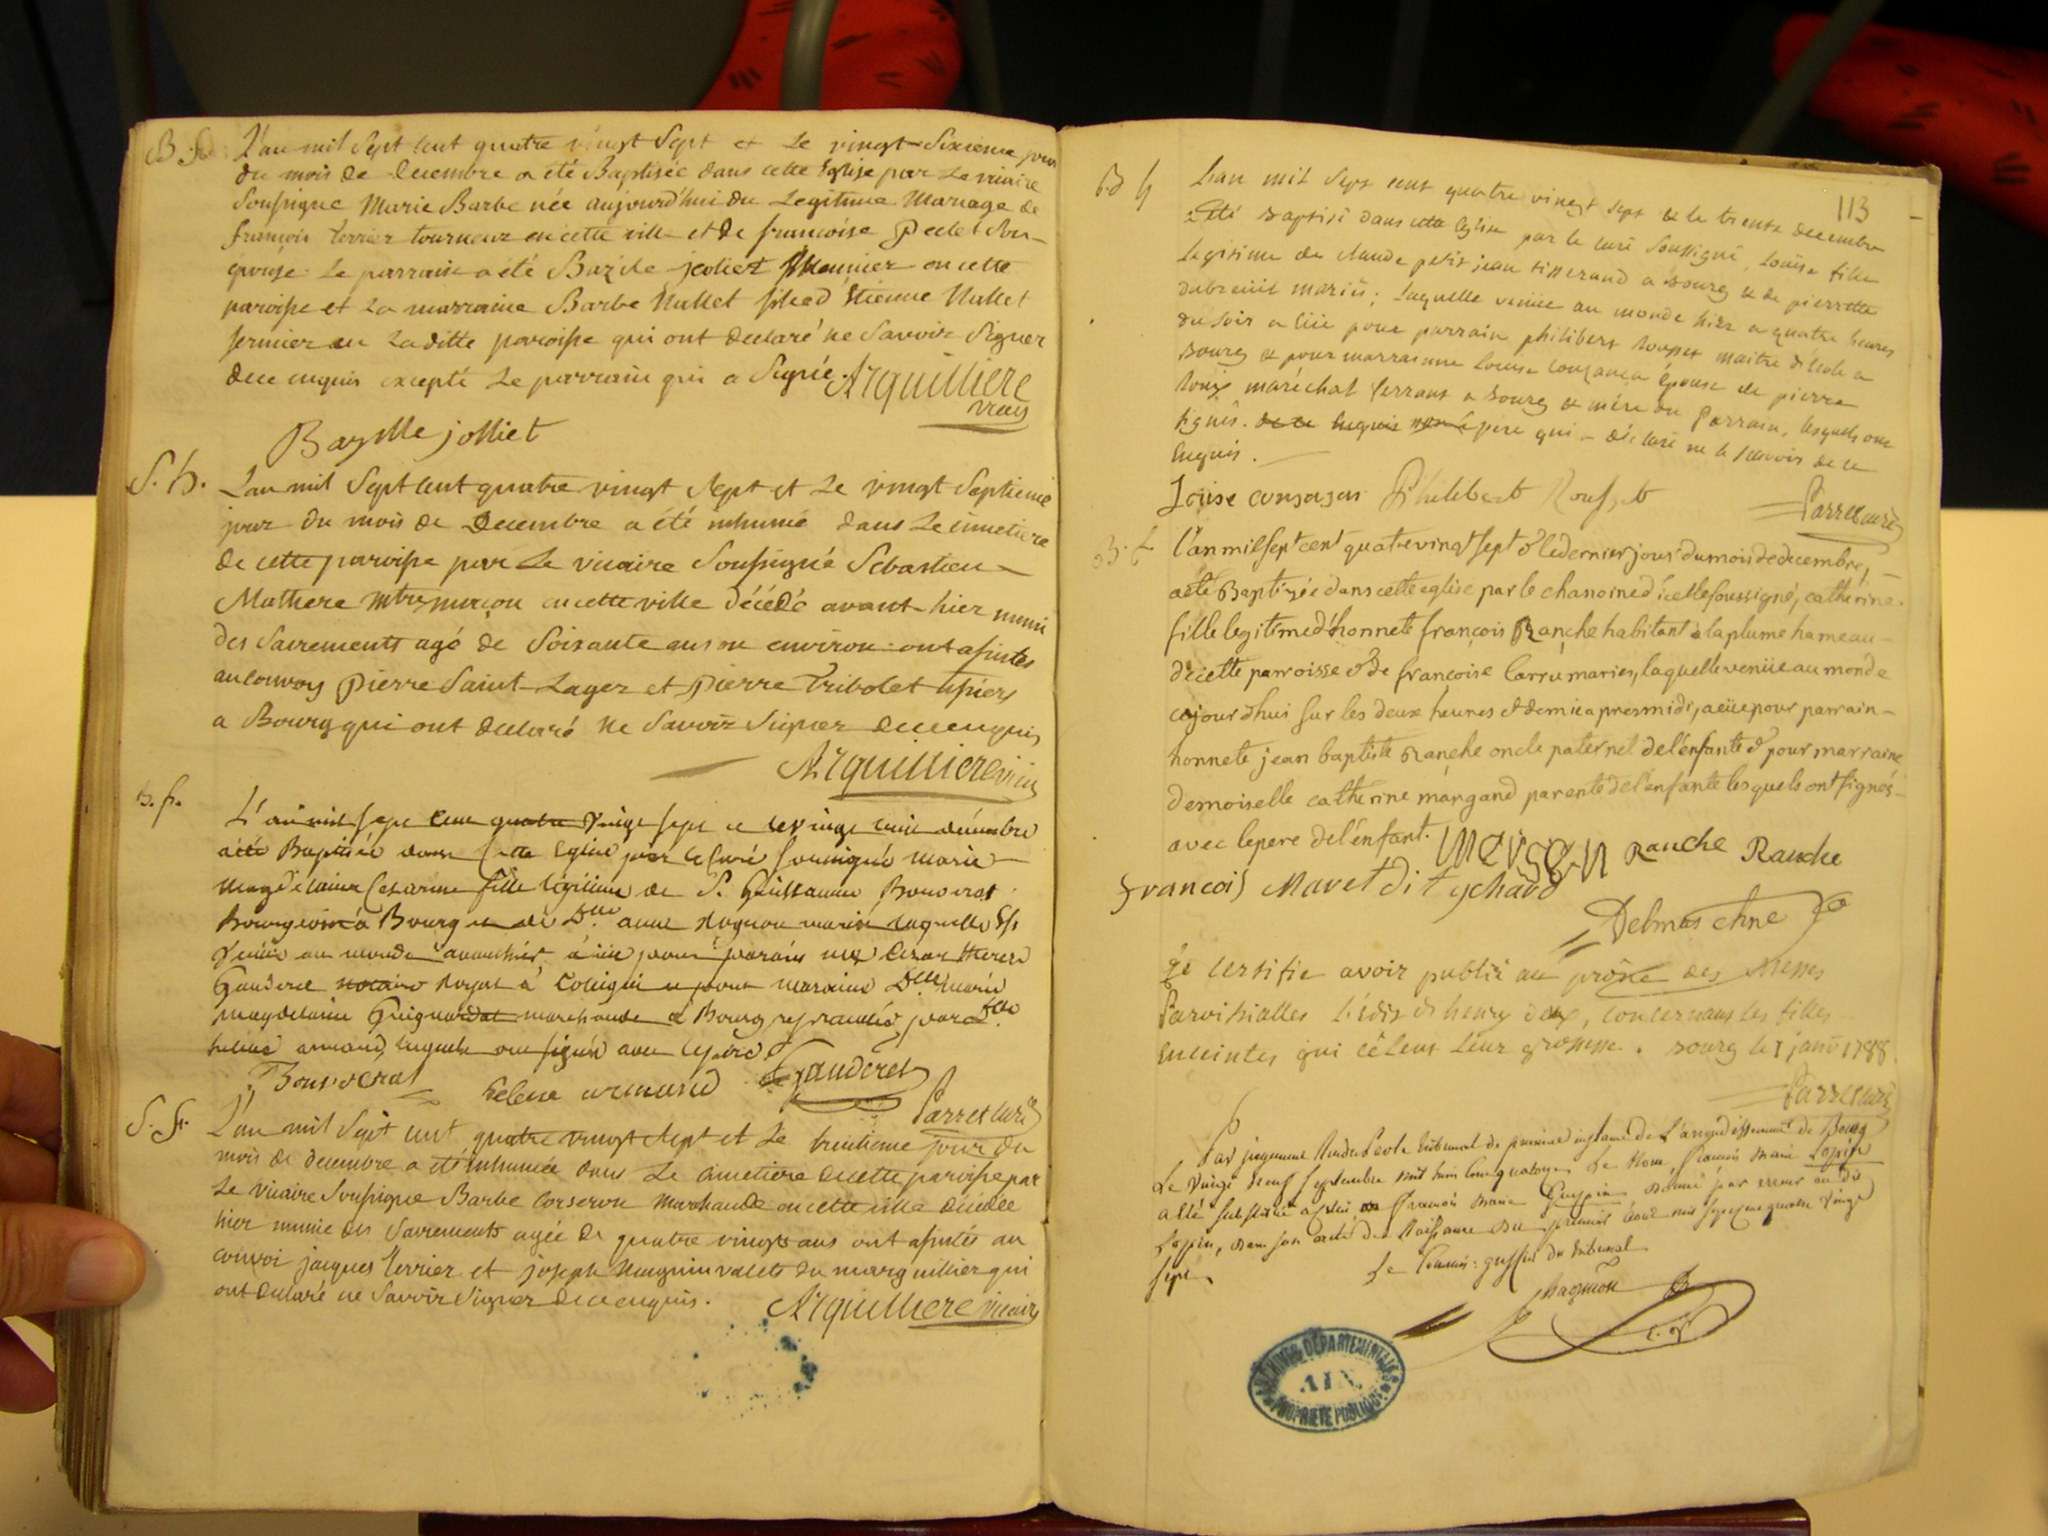 B. f.
L'an mil Sept cent quatre vingt Sept et Le vingt-Sixieme jour
du mois de Decembre a été Baptisée dans cette Eglise par Le vicaire
Soussigné Marie Barbe née aujourd'hui du Legitime Mariage de
françois terrier tourneur en cette ville et de françoise Peclet Son
épouse. Le parrain a été Bazile joliet Meunier en cette
paroisse et La marraine Barbe Nallet fille d'Etienne Nallet
fermier en La ditte paroisse qui ont declaré ne Savoir Signer
de ce enquis excepté Le parrain qui a Signé. Arquilliere
vicaire
Bazille jolliet
S. h.
L'an mil Sept cent quatre vingt Sept et Le vingt Septieme
jour du mois de Decembre a été inhumé dans Le cimetiere
de cette paroisse par Le vicaire Soussigné Sebastien
Mathere mtre maçon en cette ville décédé avant-hier muni
des Sacrements agé de Soixante ans ou environ ont assistés
au convoy Pierre Saint-Lager et Pierre Tribolet
a Bourg qui ont declaré ne Savoir Signer de ce enquis
Arquilliere vicaire
b. f.
L'an mil sept cent quatre vingt sept et le vingt huit décembre
a été Baptisée dans cette Eglise par le Curé soussigné marie
magdelaine Cesarine fille légitime de Sr. Guillaume Bouverat
Bourgeois à Bourg et de Dlle. anne mariés laquelle
venüe au monde avant hier a eüe pour parain mre Cesar
Gauderet notaire Royal à Coligni et pour maraine Dlle marie
magdelaine marchande à Bourg représentée par Dlle.
helene armand, lesquels ont signés avec le père.
Bouverat helene armand Gauderet
Parret curé
S. f.
L'an mil Sept cent quatre vingt Sept et Le trentieme jour du
mois de decembre a été inhumée dans Le cimetiere de cette paroisse par
Le vicaire Soussigné Barbe Corseron Marchande en cette ville décédée
hier munie des Sacrements agée de quatre vingts ans ont assistés au
convoi jacques terrier et joseph valets du marguillier qui
ont declaré ne Savoir Signer de ce enquis. Arquilliere vicaire
113
B f
L'an mil sept cent quatre vingt sept & le trente decembre
a été baptisé dans cette église par le curé soussigné, Louise fille
legitime de claude petit jean tisserand a bourg & de pierrette
dubreuil mariés; laquelle venüe au monde hier a quatre heures
du soir a eüe pour parrain philibert maitre d'école a
bourg & pour marrainne Louise épouse de pierre
maréchal ferrant a bourg & mère du parrain, lesquels ont
signés. de ce enquis non le père qui a déclaré ne le scavoir de ce
enquis.
Loüise Philibert
Parret curé
B. f
l'an mil sept cent quatre vingt sept & le dernier jour du mois de decembre,
a été Baptizée dans cette eglise par le chanoine d'icelle soussigné, catherine
fille legitime d'honnete françois Ranche habitant à la plume hameau
de cette parroisse & de françoise Carru mariés, laquelle venüe au monde
cejourdhui sur les deux heures & demi apres midi, a eüe pour parrain
honnete jean baptiste Ranche oncle paternel de l'enfante & pour marraine
demoiselle catherine mangand parente de l'enfante lesquels ont signés
avec le pere de l'enfant. Ranche Ranche
françois Maret dit
Delmas chne
je certifie avoir publié au prône des Messes
Paroissialles l'édit de henry deux, concernant les filles
enceintes qui cèlent leur grossesse. bourg le 1 janv 1788
Parret curé
Par jugement Rendu par le tribunal de premiere instance de L'arrondissement de Bourg
Le vingt neuf septembre mil huit cent quatorze Le Nom, François Marie Lopin
a été substitué a celui de François Marie donné par erreur au dit
Loppin, dans son acte de Naissance du premier août mil sept cent quatre vingt
sept.
Le Commis greffier du tribunal
ARCHIVES DÉPARTEMENTALES
AIN
PROPRIÉTÉ PUBLIQUE